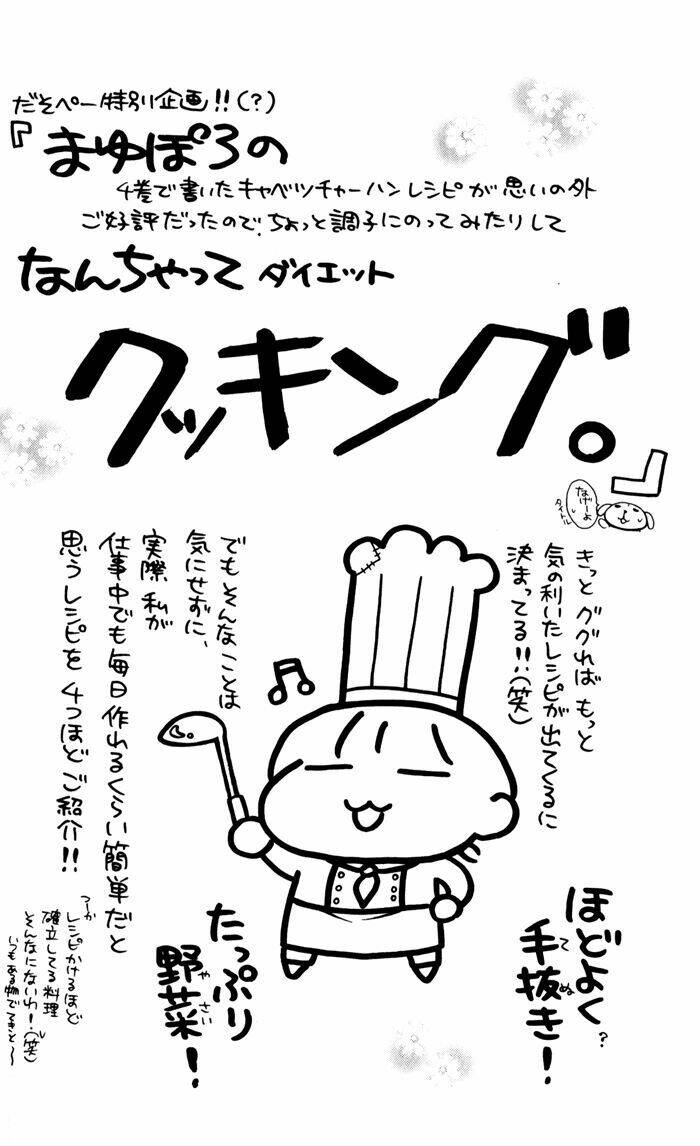 だそぺー特別企画!!(?)
『まゆぽろの
4巻で書いたキャベツチャーハンレシピが思いの外
ご好評だったので、ちょっと調子にのってみたりして
なんちゃってダイエット
クッキング。』
なげーよ
タイトル
きっとググればもっと
気の利いたレシピが出てくるに
決まってる!!(笑)
でもそんなことは
気にせずに、
実際私が
仕事中でも毎日作れるくらい簡単だと
思うレシピを4つほどご紹介!!
ほどよく?
手抜き!
てぬ
たっぷり
野菜!
やさい
つーか
レシピかけるほど
確立してる料理
そんなにないわ!(笑)
いつもある物でてきと〜〜